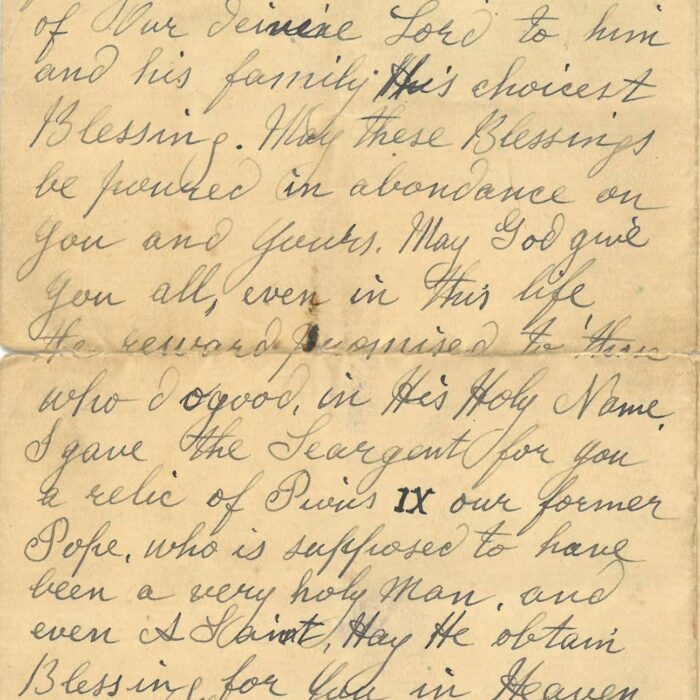 of Our deivine Lord to him
and his family His choicest
Blessing. May these Blessings
be poured in abondance on
you and yours. May God give
you all, even in this life
the reward promised to them
who do good, in His Holy Name.
I gave the Seargent for you
a relic of Pius IX our former
Pope, who is supposed to have
been a very holy Man, and
even A Saint, May He obtain
Blessing for you in Heaven